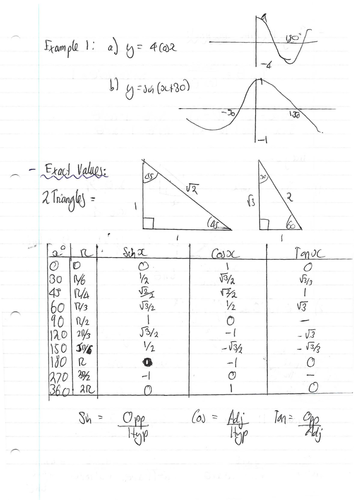 Example 1: a) y = 4cosx
4
180°
-4
b) y = sin(x+30)
1
-30
150
-1
- Exact Values:
2 Triangles =
45
1
√2
45
1
√3
2
60
1
a° R Sinx Cosx Tanx
0 0 0 1 0
30 π/6 1/2 √3/2 √3/3
45 π/4 √2/2 √2/2 1
60 π/3 √3/2 1/2 √3
90 π/2 1 0 -
120 2π/3 √3/2 -1 -√3
150 5π/6 1/2 -√3/2 -√3/3
180 π 0 -1 0
270 3π/2 -1 0 -
360 2π 0 1 0
Sin = Opp/Hyp Cos = Adj/Hyp Tan = Opp/Adj